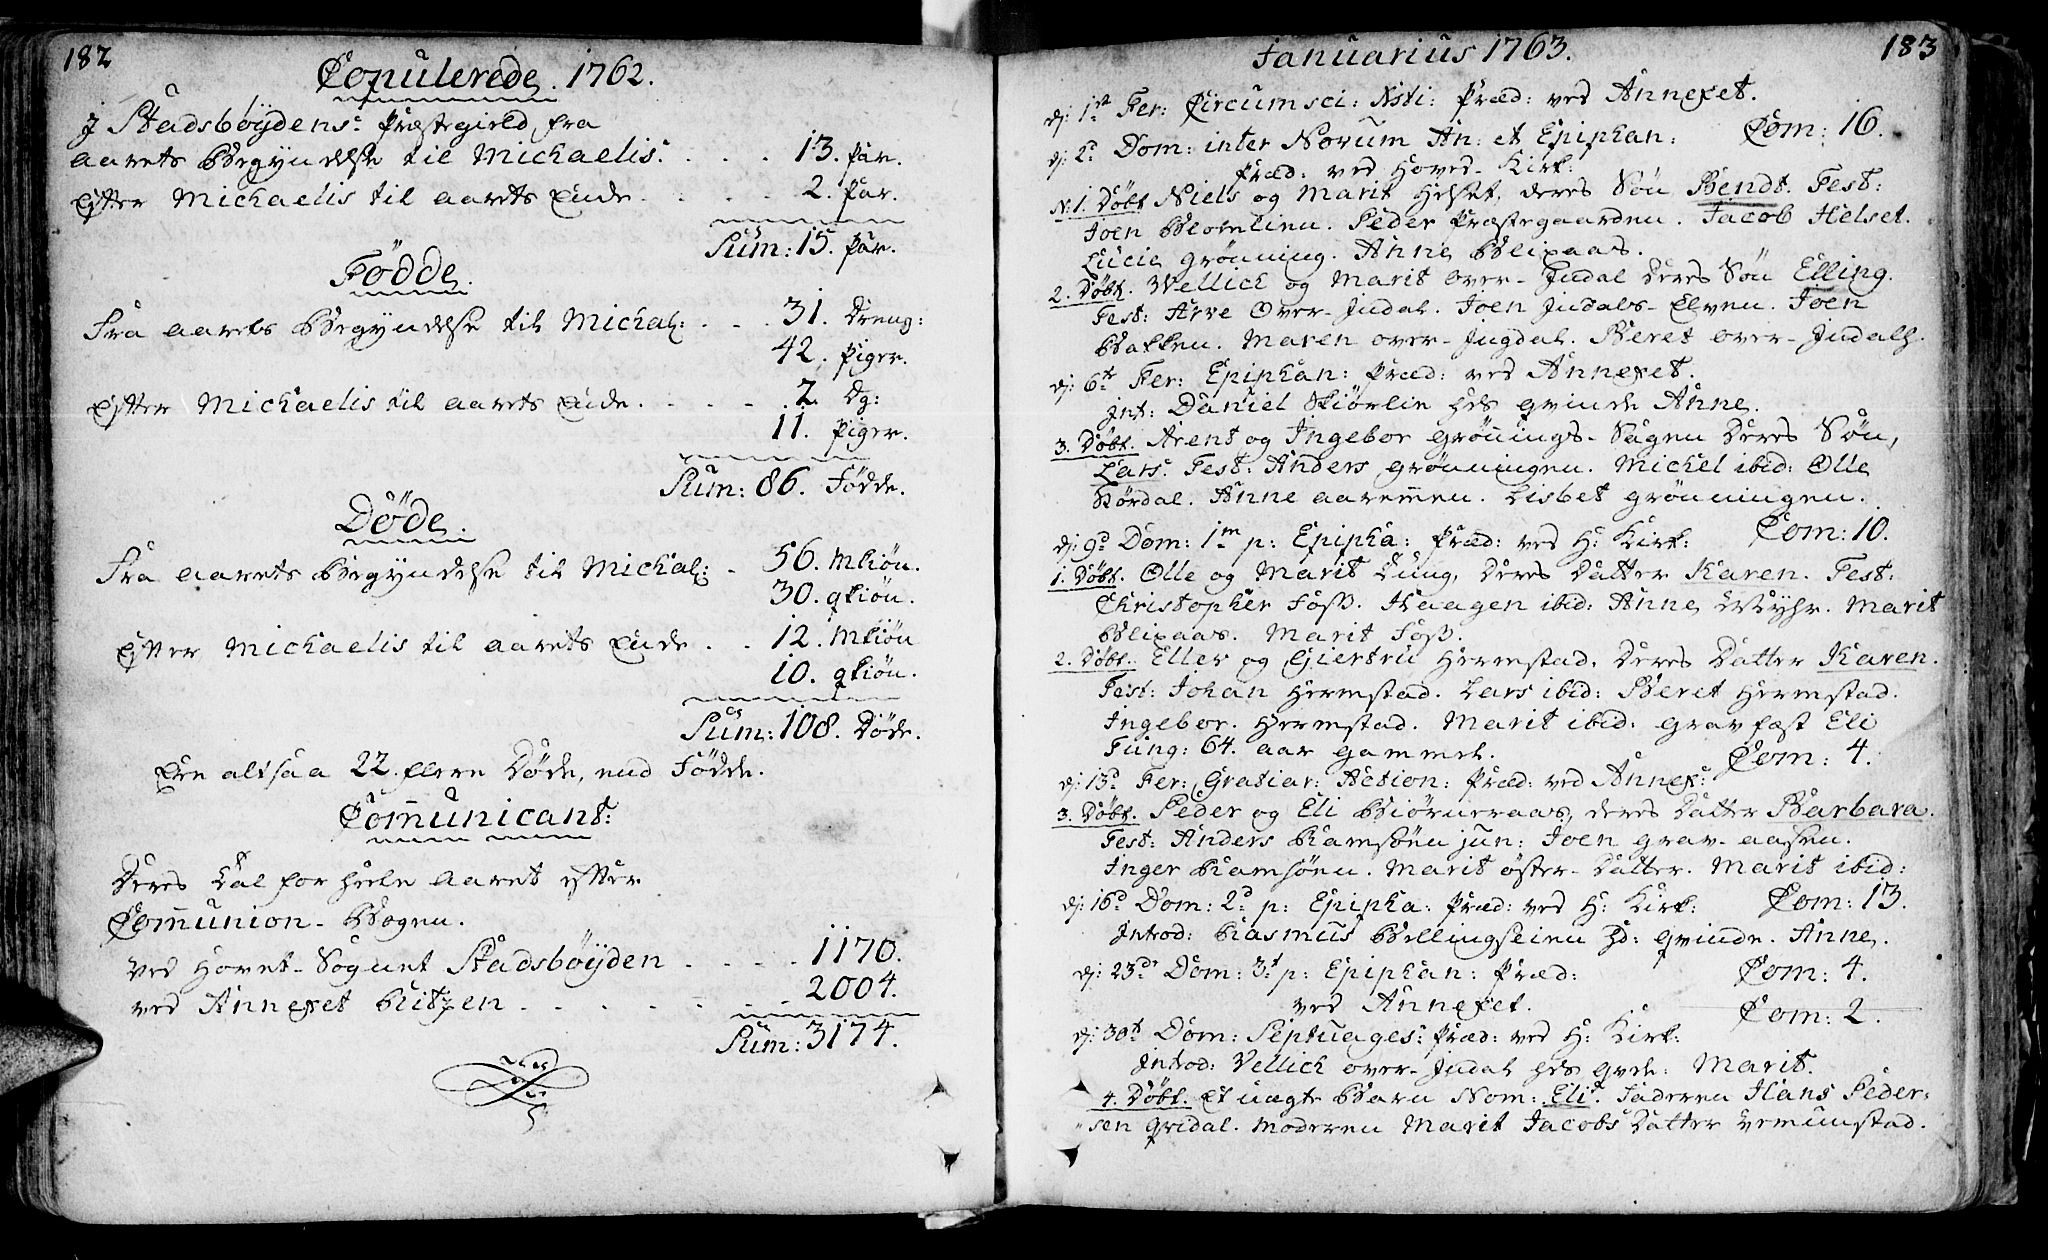 182
Copulerede. 1762.
J Stadsbøydens Præstegield fra
aarets Begyndelse til Michaelis. . . . 13. Par.
Efter Michaelis til aarets Ende. . . . 2. Par.
Sum: 15. Par.
Födde.
Fra aarets Begyndelse til Michal: . . . 31. Dreng:
42. Piger.
Efter Michaelis til aarets Ende. . . . 2. Dg:
11. Piger.
Sum: 86. Födde.
Døde.
Fra aarets Begyndelse til Michal: . 56. Mkiön.
30. qkiön.
Efter Michaelis til aarets Ende . . 12. Mkiön
10. qkiön.
Sum: 108. Døde.
Ere altsaa 22. flere Døde, end Födde.
Com̄unicant:
Deres Tal for heele Aaret efter
Com̄union-Bogen.
Ved Hovet-Sognet Stadsböyden . . . . 1170.
ved Annexet Ritzen . . . . . . . 2004.
Sum: 3174.
Januarius 1763.
183
dj: 1st Fer: Circumsci: Xsti: Præd: ved Annexet.
dj: 2d Dom: inter Novum An: et Epiphan: Com: 16.
Præd: ved Hoved-Kirk:
N: 1. Døbt Niels og Marit Helset, deres Sön Bendt. Test:
Joen Blomlien. Peder Præstegaarden. Jacob Helset.
Lucie grönning. Anne Blixaas.
2. Døbt. Vellich og Marit over-Jndal deres Sön Elling.
Test: Arve Over-Jndal. Joen Jndals-Elven. Joen
Bakken. Maren over-Jngdal. Beret over-Jndalh.
dj: 6t Fer: Epiphan: Præd: ved Annexet.
Jnt: Daniel Skiörlie hds qvinde Anne.
3. Døbt. Arent og Ingebor Grönnings-Sagen deres Sön,
Lars. Test: Anders grönningen. Michel ibid: Olle
Hördal. Anne aaremmen. Lisbet grönningen.
dj: 9d Dom: 1m p: Epipha: Præd: ved H: Kirk: Com: 10.
1. Døbt. Olle og Marit Lüng, deres Datter Karen. Test:
Christopher Foss. Haagen ibid: Anne Myhr. Marit
Blixaas. Marit Foss.
2. Døbt. Eller og Giertru Hermstad. Deres Datter Karen.
Test: Johan Hermstad. Lars ibid: Beret Hermstad.
Ingebor. Hermstad. Marit ibid: gravfæst Eli
Fung: 64. aar gammel. Com: 4.
dj: 13d Fer: Gratiar: Action: Præd: ved Annex:
3. Døbt. Peder og Eli Biörneraas, deres Datter Barbara.
Test: Anders Ramsöen jun: Joen grav-aasen.
Inger Ramsöen. Marit öster-Datter. Marit ibid:
dj: 16d Dom: 2d p: Epipha: Præd: ved H: Kirk: Com: 13.
Introd: Rasmus Bellingseien hd: qvinde. Anne.
dj: 23d Dom: 3t p: Epiphan: Præd: Com: 4.
ved Annexet. Com: 2.
dj: 30t Dom: Septuages: Præd: ved H: Kirk:
Introd: Vellich over-Jndal hds qvde: Marit.
4. Døbt. Et uægte Barn Nom: Eli. Faderen Hans Peder-
sen Qvidal. Moderen Marit Jacobs Datter Vemundstad.